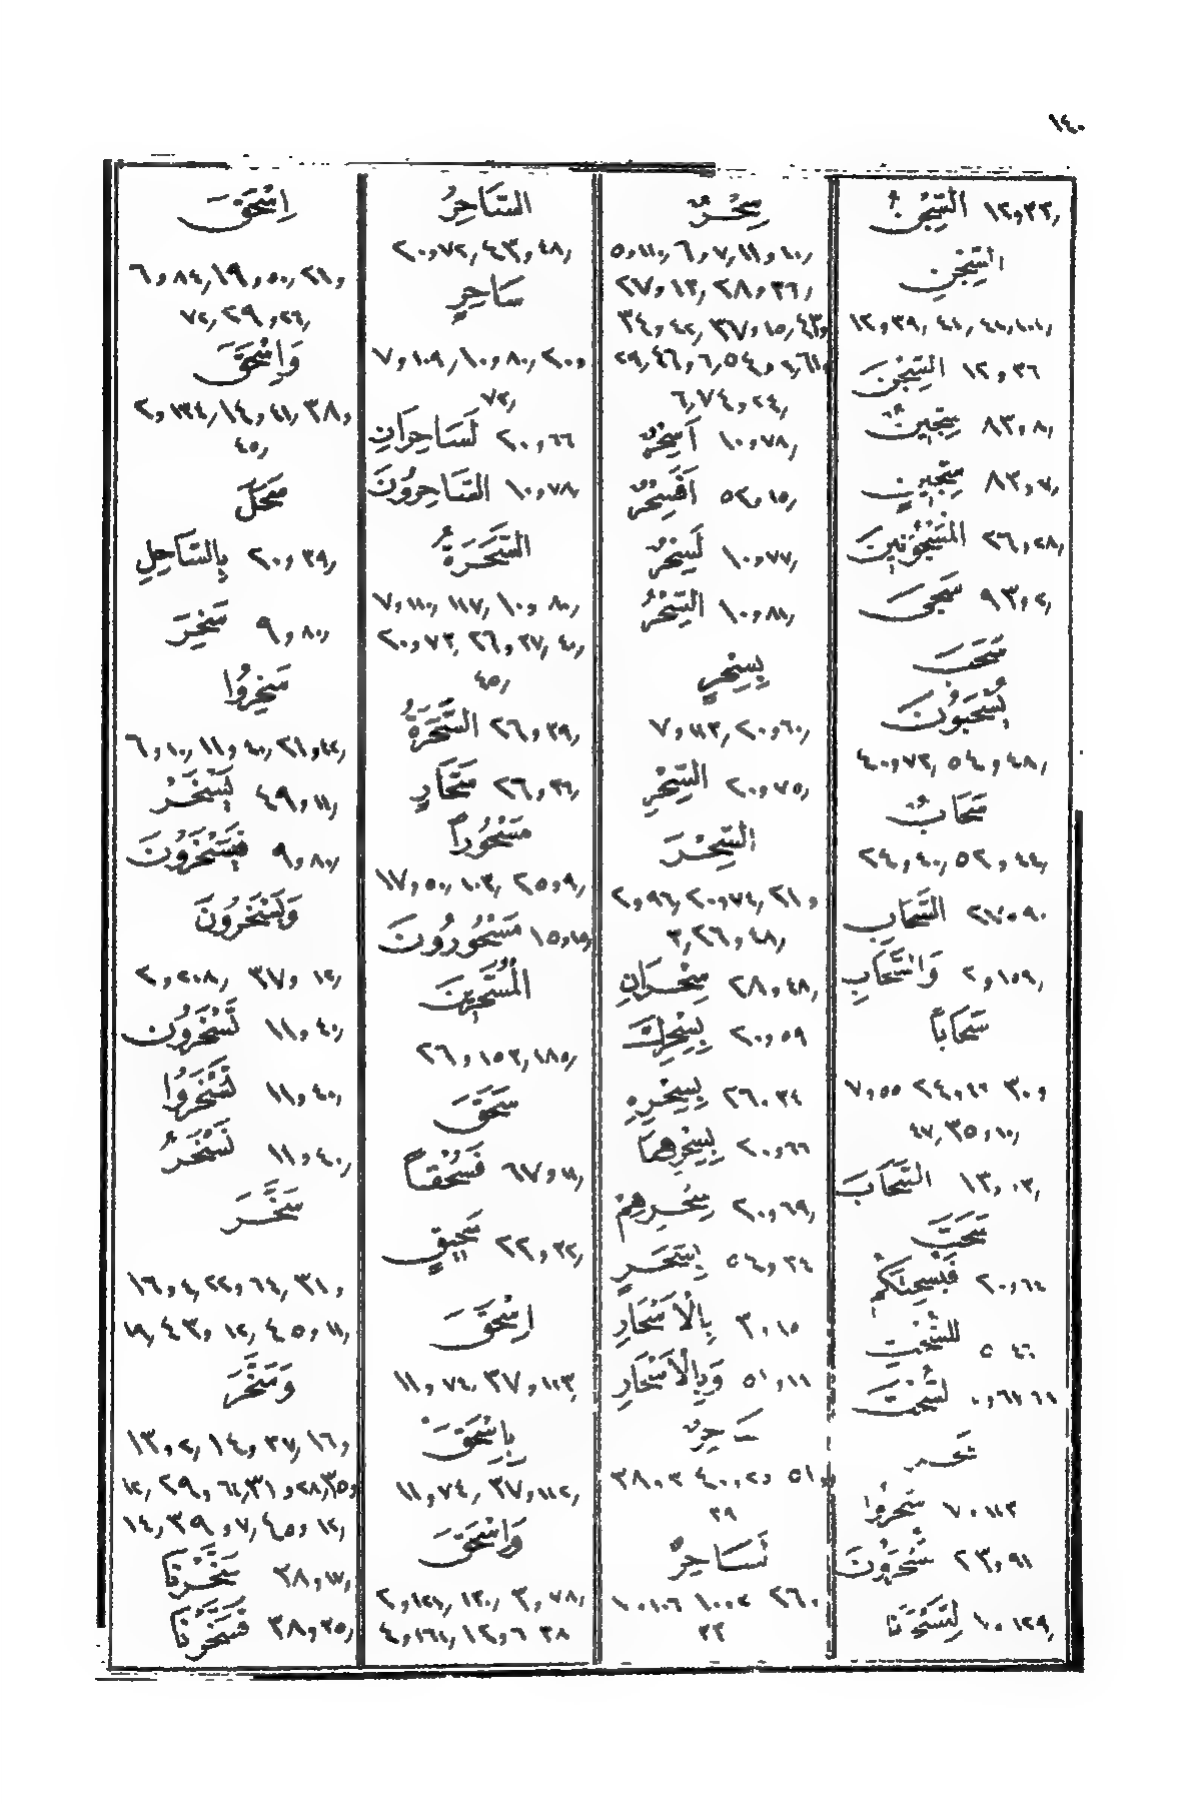 ١٤٠
السِّجْنُ ١٢,٣٣
السِّجْنِ
١٢,٣٩, ٤١, ٤٢,١٠٠
السِّجْنَ ١٢,٣٦
سِجِّينٌ ٨٣,٨
سِجِّينٍ ٨٣,٧
الْمَسْجُونِينَ ٢٦,٢٨
سَجَىٰ ٩٣,٢
سَحَبَ
يُسْحَبُونَ
٤٠,٧٢, ٥٤,٤٨
سَحَابٌ
٢٤,٤٠, ٥٢,٤٤
السَّحَابِ ٢٧,٩٠
وَالسَّحَابِ ٢,١٥٩
سَحَاباً
٧,٥٥ ٢٤,٤٢ ٣٠,
٤٧, ٣٥,١٠
السَّحَابَ ١٣,١٣
سَحَتَ
فَيُسْحِتَكُمْ ٢٠,٦٤
لِلسُّحْتِ ٥ ٤٦
السُّحْتَ ٥,٦٦ ٦٧
سحر
سَحَرُوا ٧,١١٣
تُسْحَرُونَ ٢٣,٩١
لِتَسْحَرَنَا ١٠,١٢٩
سِحْرٌ
٥,١١٠, ٦,٧, ١١,١٠
٢٧,١٣, ٢٨,٣٦
٣٤,٤٢, ٣٧,١٥, ٤٣
٢٩, ٤٦,٦, ٥٤,٢, ٦١
٦, ٧٤,٢٤
أَسِحْرٌ ١٠,٧٨
أَفَسِحْرٌ ٥٢,١٥
لَسِحْرٌ ١٠,٧٧
السِّحْرُ ١٠,٨١
بِسِحْرٍ
٧,١١٣, ٢٠,٦٠
السِّحْرِ ٢٠,٧٥
السِّحْرَ
٢,٩٦, ٢٠,٧٤, ٢١,
٣, ٢٦,٤٨
سِحْرَانِ ٢٨,٤٨
بِسِحْرِكَ ٢٠,٥٩
بِسِحْرِهِ ٢٦,٣٤
بِسِحْرِهِمَا ٢٠,٦٦
سِحْرِهِمْ ٢٠,٦٩
بِسَحَرٍ ٥٤,٣٤
بِالْأَسْحَارِ ٣,١٥
وَبِالْأَسْحَارِ ٥١,١٨
سَاحِرٌ
٣٨,٣ ٤٠,٢ ٥١,
٣٩
لَسَاحِرٌ
١٠,١٠٦ ١٠,٢ ٢٦,
٣٣
السَّاحِرُ
٢٠,٧٢, ٤٣,٤٨
سَاحِرٍ
٧,١٠٩, ١٠,٨٠, ٢٠,
٧٢
لَسَاحِرَانِ ٢٠,٦٦
السَّاحِرُونَ ١٠,٧٨
السَّحَرَةُ
٧,١١٠, ١١٧, ١٠,٨٠
٢٠,٧٣, ٢٦,٣٧, ٤٠
٤٥
السَّحَرَةُ ٢٦,٣٩
سَحَّارٍ ٢٦,٣٦
مَسْحُوراً
١٧,٥٠, ١٠٣, ٢٥,٩
مَسْحُورُونَ ١٥,١٥
الْمُسَحَّرِينَ
٢٦,١٥٣,١٨٥
سَحَقَ
فَسُحْقاً ٦٧,١١
سَحِيقٍ ٢٢,٣٢
إِسْحَقَ
١١,٧٤, ٣٧,١١٣
بِإِسْحَقَ
١١,٧٤, ٣٧,١١٢
وَإِسْحَقَ
٢,١٣٤, ١٣٠, ٣,٧٨
٤,١٦٤, ١٢,٦ ٣٨
إِسْحَقَ
٦,٨٤, ١٩,٥٠, ٢١,
٧٢, ٢٩,٢٦
وَإِسْحَقَ
٢,١٣٤, ١٤,٤١, ٣٨,
٤٥
سَحَلَ
بِالسَّاحِلِ ٢٠,٣٩
سَخِرَ ٩,٨٠
سَخِرُوا
٦,١٠, ١١,٤٠, ٢١,٤٢
يَسْخَرْ ٤٩,١١
فَيَسْخَرُونَ ٩,٨٠
وَيَسْخَرُونَ
٢,٢٠٨, ٣٧,١٢
تَسْخَرُونَ ١١,٤٠
تَسْخَرُوا ١١,٤٠
نَسْخَرُ ١١,٤٠
سَخَّرَ
١٦,٤, ٢٢,٦٤, ٣١,
١٩, ٤٣,١٢, ٤٥,١١
وَسَخَّرَ
١٣,٢, ١٤,٣٧, ١٦,
١٢, ٢٩,٦١, ٣١,٢٨, ٣٥,
١٤, ٣٩,٧, ٤٥,١٢
سَخَّرْنَا ٣٨,١٧
فَسَخَّرْنَا ٣٨,٣٥